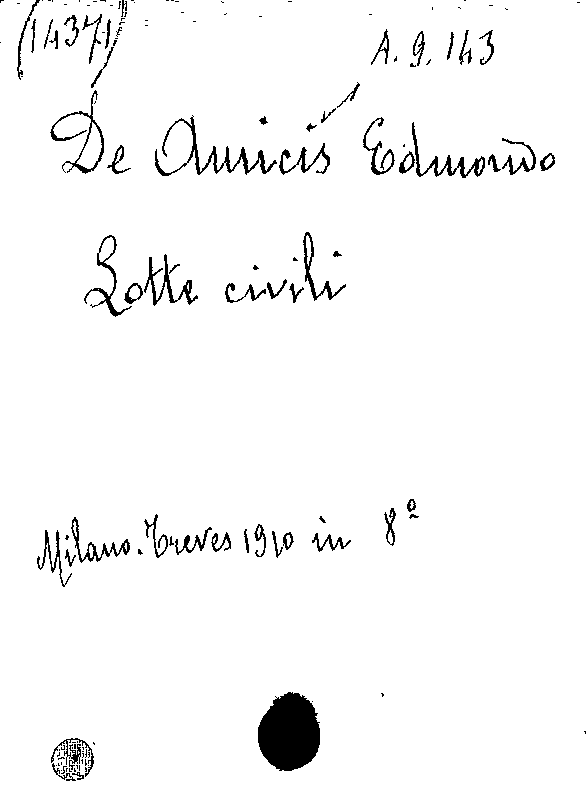 (14371)
A. 9. 143
De Amicis Edmondo
Lotte civili
Milano. Treves 1910 in 8º